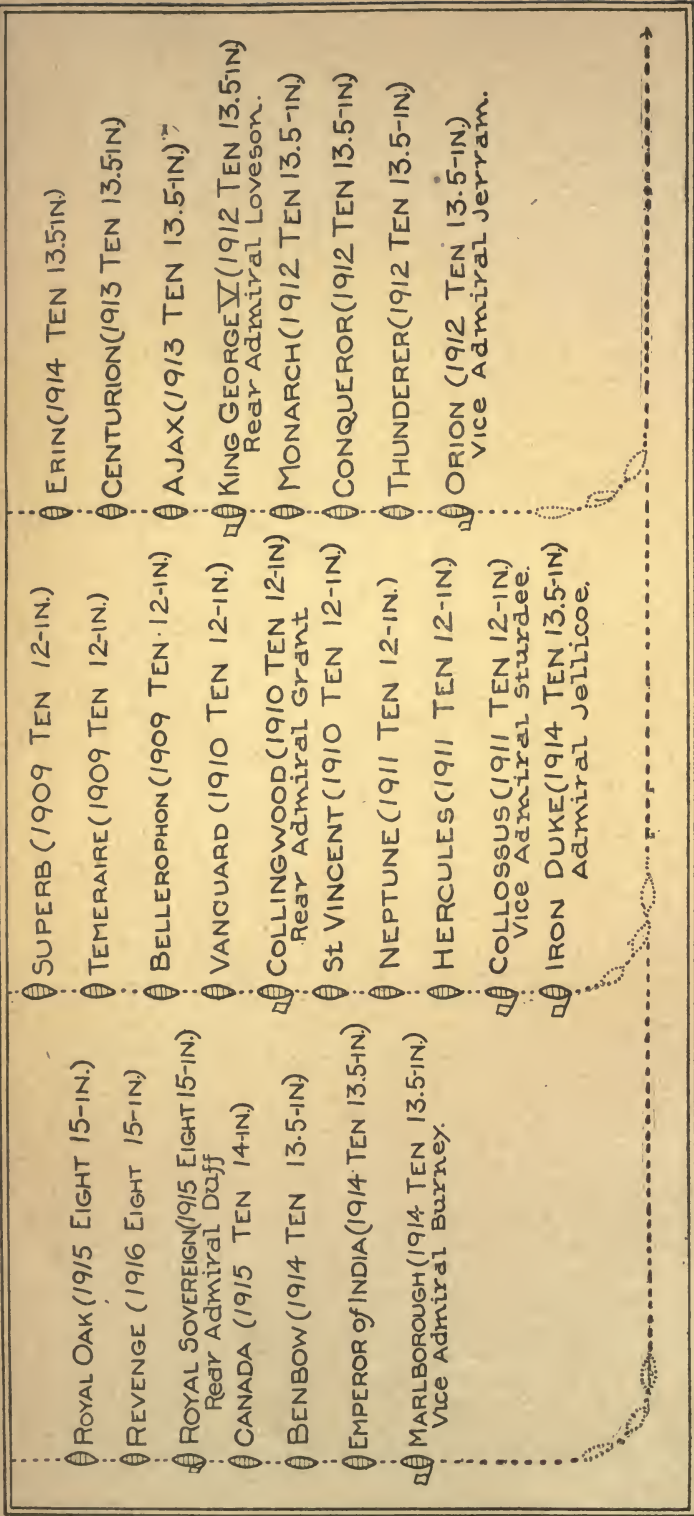 ROYAL OAK (1915 EIGHT 15-IN.)
REVENGE (1916 EIGHT 15-IN.)
ROYAL SOVEREIGN (1915 EIGHT 15-IN.)
Rear Admiral Duff
CANADA (1915 TEN 14-IN.)
BENBOW (1914 TEN 13.5-IN.)
EMPEROR of INDIA (1914 TEN 13.5-IN.)
MARLBOROUGH (1914 TEN 13.5-IN.)
Vice Admiral Burney.
SUPERB (1909 TEN 12-IN.)
TEMERAIRE (1909 TEN 12-IN.)
BELLEROPHON (1909 TEN 12-IN.)
VANGUARD (1910 TEN 12-IN.)
COLLINGWOOD (1910 TEN 12-IN)
Rear Admiral Grant
St VINCENT (1910 TEN 12-IN.)
NEPTUNE (1911 TEN 12-IN.)
HERCULES (1911 TEN 12-IN.)
COLLOSSUS (1911 TEN 12-IN.)
Vice Admiral Sturdee.
IRON DUKE (1914 TEN 13.5-IN.)
Admiral Jellicoe.
ERIN (1914 TEN 13.5-IN.)
CENTURION (1913 TEN 13.5IN.)
AJAX (1913 TEN 13.5-IN.)
KING GEORGE V (1912 TEN 13.5-IN.)
Rear Admiral Loveson.
MONARCH (1912 TEN 13.5-IN.)
CONQUEROR (1912 TEN 13.5-IN.)
THUNDERER (1912 TEN 13.5-IN.)
ORION (1912 TEN 13.5-IN.)
Vice Admiral Jerram.